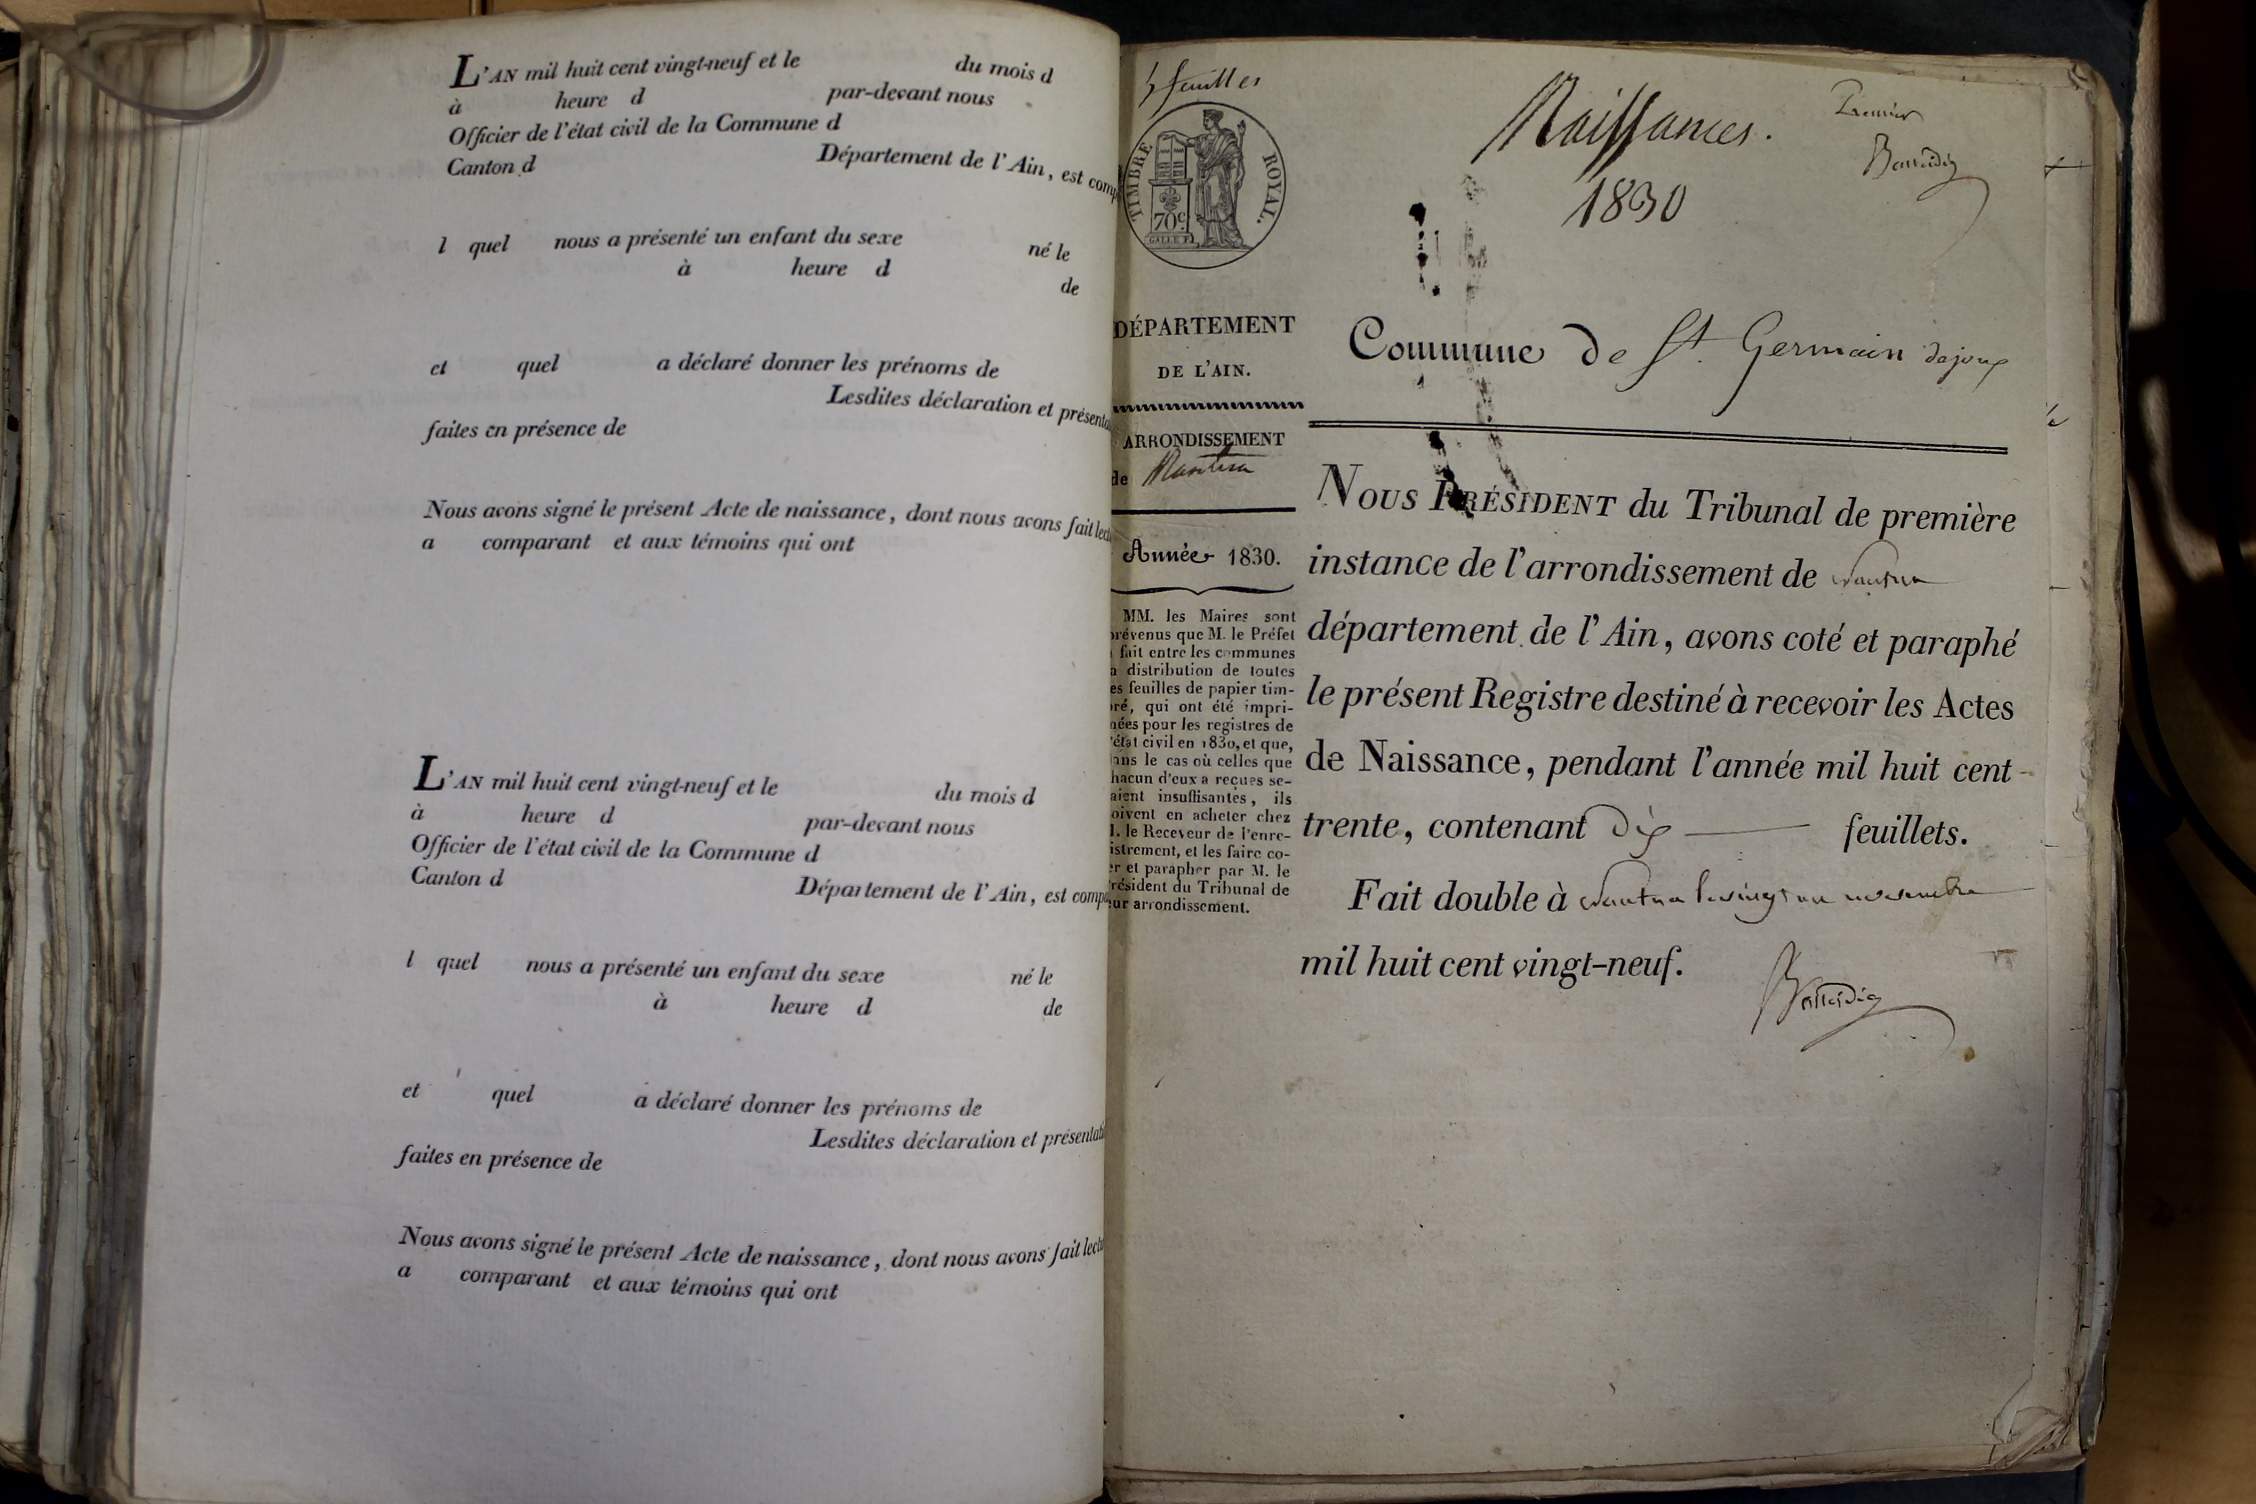 L'AN mil huit cent vingt-neuf et le du mois d
à heure d par-devant nous
Officier de l'état civil de la Commune d
Canton d Département de l'Ain, est comp
l quel nous a présenté un enfant du sexe né le
à heure d
de
et quel a déclaré donner les prénoms de
Lesdites déclaration et présenta
faites en présence de
Nous avons signé le présent Acte de naissance, dont nous avons fait lect
a comparant et aux témoins qui ont
L'AN mil huit cent vingt-neuf et le du mois d
à heure d par-devant nous
Officier de l'état civil de la Commune d
Canton d Département de l'Ain, est comp
l quel nous a présenté un enfant du sexe né le
à heure d de
et quel a déclaré donner les prénoms de
Lesdites déclaration et présentat
faites en présence de
Nous avons signé le présent Acte de naissance, dont nous avons fait lectu
a comparant et aux témoins qui ont
5 feuilles
TIMBRE ROYAL.
70c.
GALLE F.
DÉPARTEMENT
DE L'AIN.
ARRONDISSEMENT
de Nantua
Année 1830.
MM. les Maires sont
prévenus que M. le Préfet
fait entre les communes
a distribution de toutes
es feuilles de papier tim-
ré, qui ont été impri-
ées pour les registres de
l'état civil en 1830, et que,
ans le cas où celles que
hacun d'eux a reçues se-
aient insuffisantes, ils
oivent en acheter chez
M. le Receveur de l'enre-
istrement, et les faire co-
er et parapher par M. le
Président du Tribunal de
eur arrondissement.
Naissances.
1830
Premier
Commune de St. Germain dejoux
NOUS PRÉSIDENT du Tribunal de première
instance de l'arrondissement de Nantua
département de l'Ain, avons coté et paraphé
le présent Registre destiné à recevoir les Actes
de Naissance, pendant l'année mil huit cent
trente, contenant dix feuillets.
Fait double à Nantua le vingt un novembre
mil huit cent vingt-neuf.